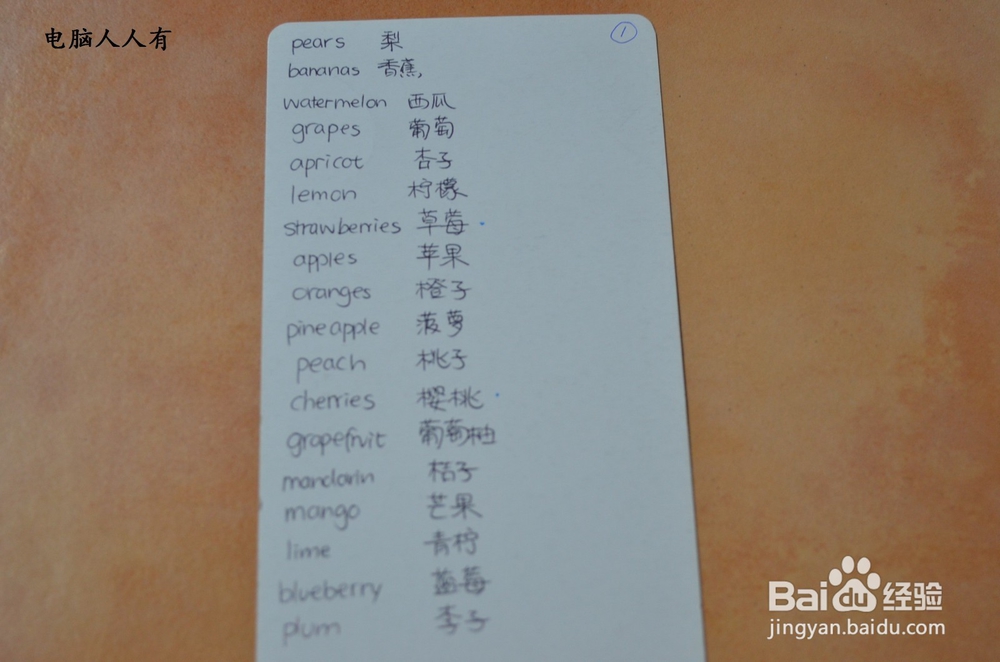 电脑人人有
①
pears 梨
bananas 香蕉,
watermelon 西瓜
grapes 葡萄
apricot 杏子
lemon 柠檬
strawberries 草莓
apples 苹果
oranges 橙子
pineapple 菠萝
peach 桃子
cherries 樱桃
grapefruit 葡萄柚
mandarin 桔子
mango 芒果
lime 青柠
blueberry 蓝莓
plum 李子
Baidu 经验
jingyan.baidu.com